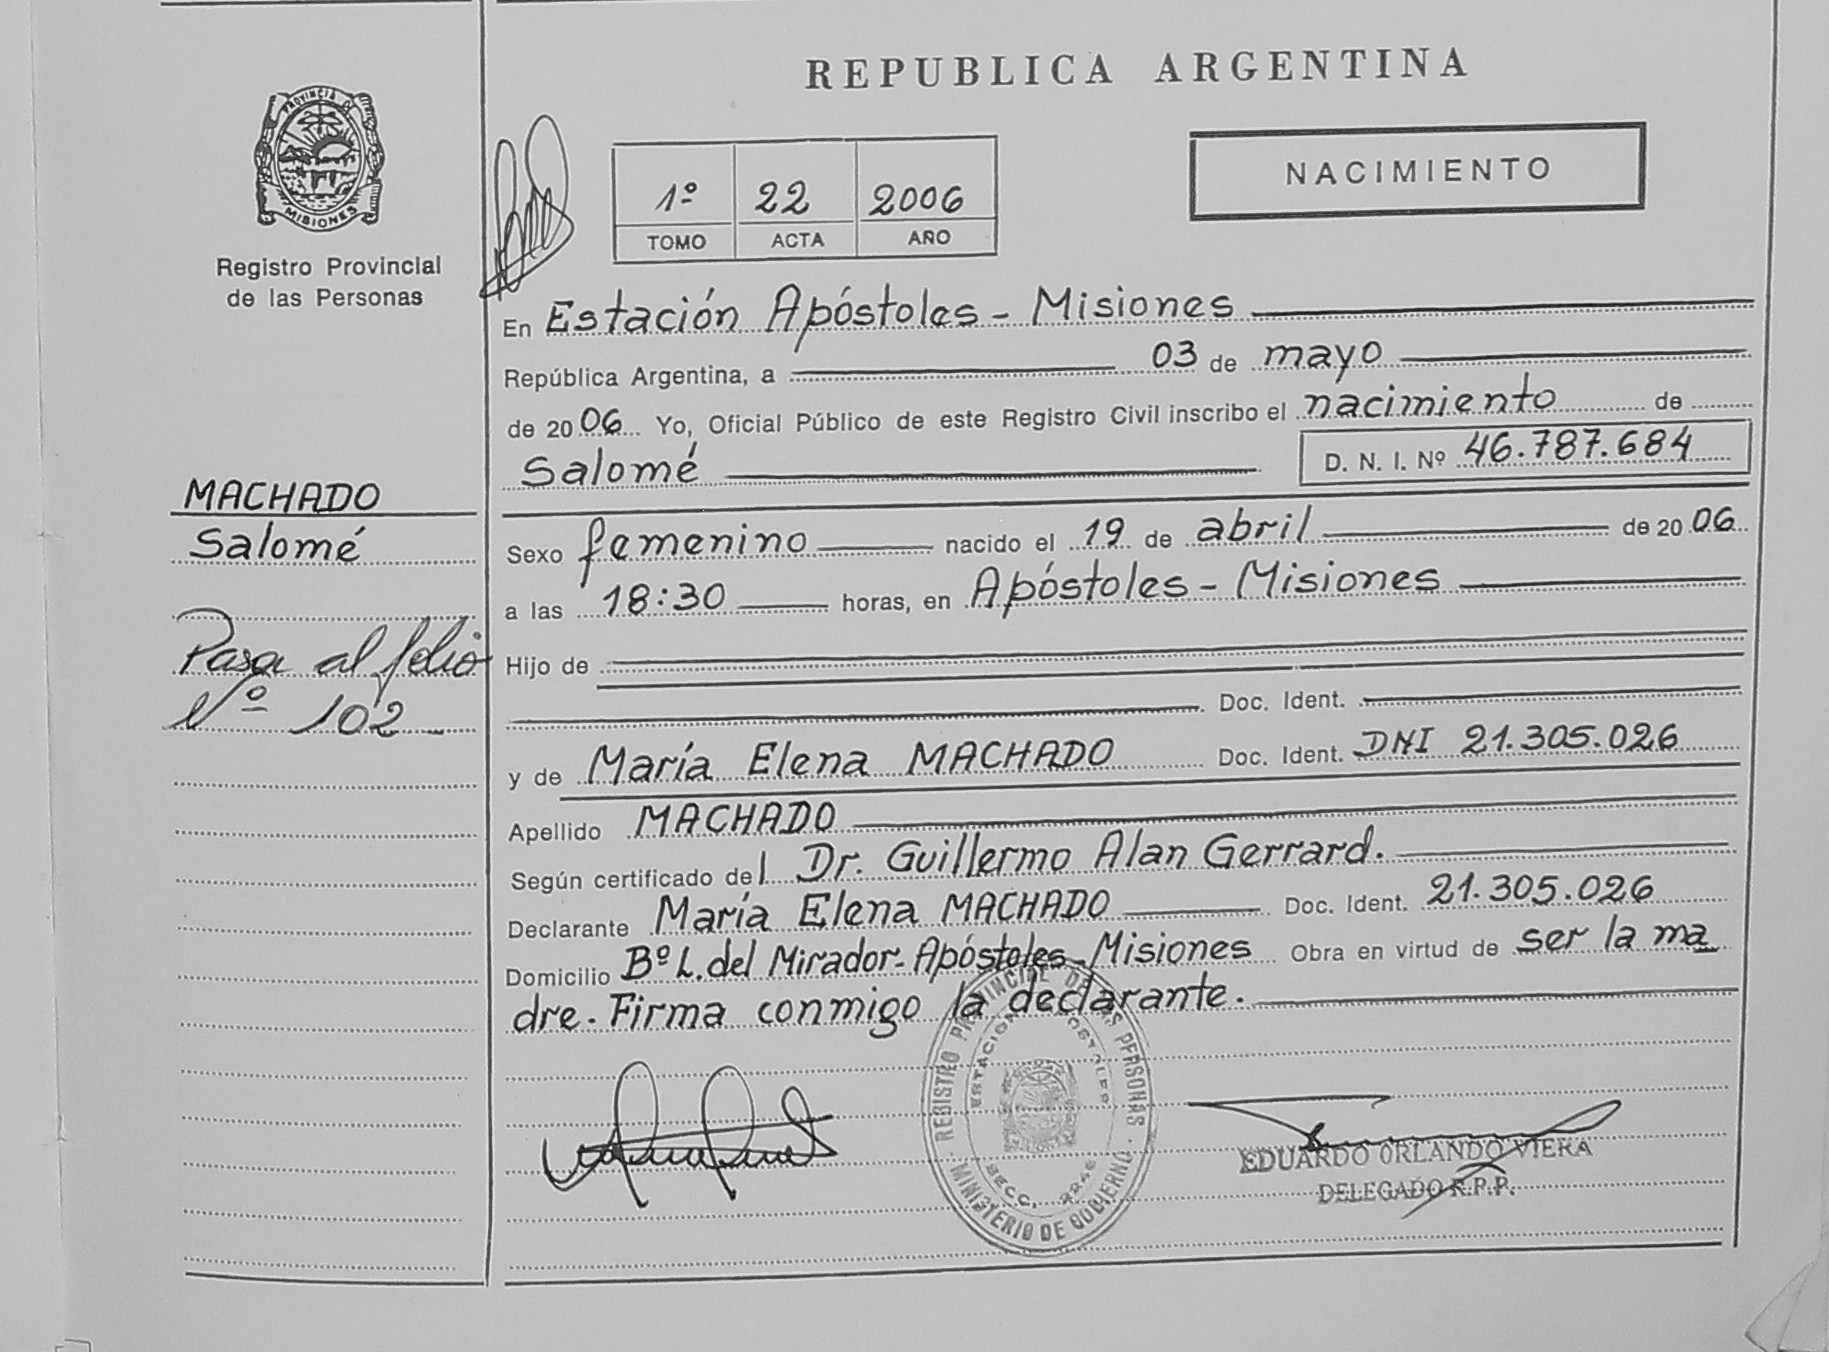 REPUBLICA ARGENTINA
PROVINCIA DE
MISIONES
Registro Provincial
de las Personas
1º 22 2006
TOMO ACTA AÑO
NACIMIENTO
En Estación Apóstoles - Misiones
República Argentina, a 03 de mayo
de 2006 Yo, Oficial Público de este Registro Civil inscribo el nacimiento de
Salomé D. N. I. Nº 46.787.684
MACHADO
Salomé
Pasa al folio
Nº 102
Sexo femenino nacido el 19 de abril de 2006
a las 18:30 horas, en Apóstoles - Misiones
Hijo de
Doc. Ident.
y de María Elena MACHADO Doc. Ident. DNI 21.305.026
Apellido MACHADO
Según certificado del Dr. Guillermo Alan Gerrard.
Declarante María Elena MACHADO Doc. Ident. 21.305.026
Domicilio Bº L. del Mirador - Apóstoles - Misiones Obra en virtud de ser la ma
dre. Firma conmigo la declarante.
REGISTRO PROVINCIAL DE LAS PERSONAS
ESTACION APOSTOLES
SECC.
MINISTERIO DE GOBIERNO
EDUARDO ORLANDO VIERA
DELEGADO R.P.P.